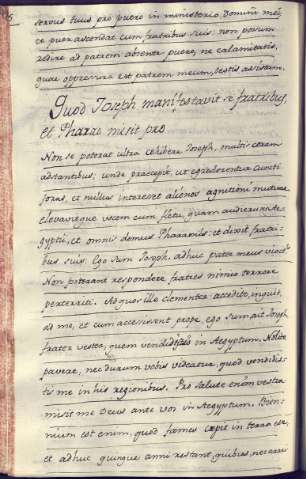 servus tuus pro puero in ministerio Domini mei,
et puer ascendat cum fratribus suis. non possum
redire ad patrem absente puero, ne calamitatis,
quae oppressura est patrem meum, testis assistam.
Quod Joseph manifestavit se fratribus,
et Pharao misit pro
Non se poterat ultra cohibere Joseph, multis coram
adstantibus, unde praecepit, ut egrederentur cuncti
foras, et nullus interesset alienus agnitioni mutuae
elevavitque vocem cum fletu, quam audierunt Ae-
gyptii, et omnis domus Pharaonis, et dixit fratri-
bus suis. Ego sum Joseph, adhuc pater meus vivit?
Non poterant respondere fratres nimio terrore
perterriti. Ad quos ille clementer accedite, inquit,
ad me, et cum accessissent prope, ego sum, ait, Joseph,
frater vester, quem vendidistis in Aegyptum. Nolite
pavere, nec durum vobis videatur, quod vendidis-
tis me in his regionibus. Pro salute enim vestra
misit me Deus ante vos in Aegyptum. Bien-
nium est enim, quod fames caepit in terra esse,
et adhuc quinque anni restant, quibus nec arari